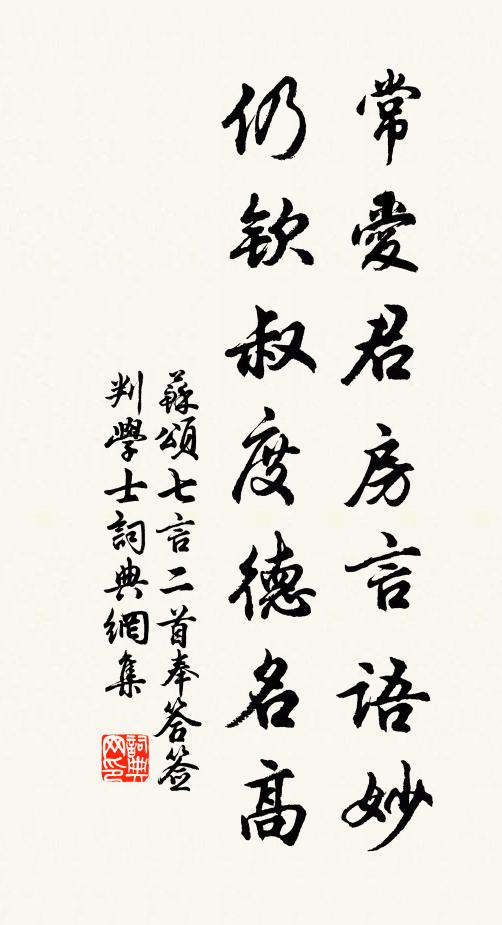 常愛君房言語妙
仍欽叔度德名高
蘇頌七言二首奉答簽
判學士詞典網集
詞典網印